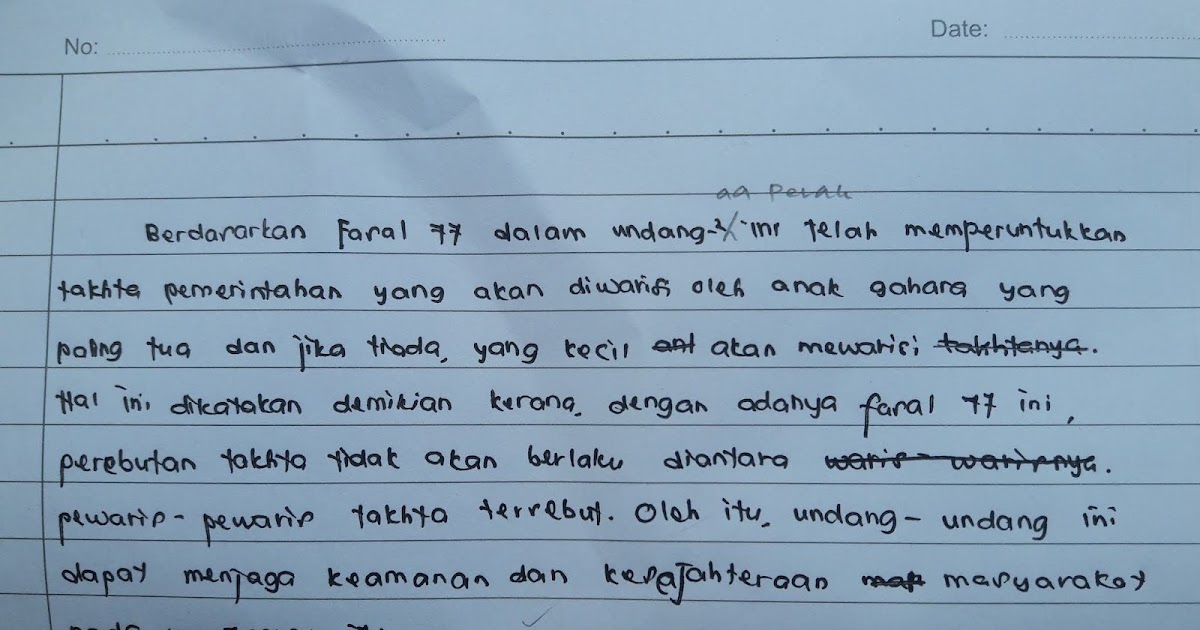 No:
Date:
99 Perak
Berdasarkan Fasal 77 dalam undang-2 ini telah memperuntukkan
takhta pemerintahan yang akan diwarisi oleh anak gahara yang
paling tua dan jika tiada, yang kecil ant akan mewarisi takhtanya.
Hal ini dikatakan demikian kerana, dengan adanya fasal 77 ini,
perebutan takhta tidak akan berlaku diantara waris-warisnya.
pewaris-pewaris takhta tersebut. Oleh itu, undang-undang ini
dapat menjaga keamanan dan kesejahteraan masyarakat